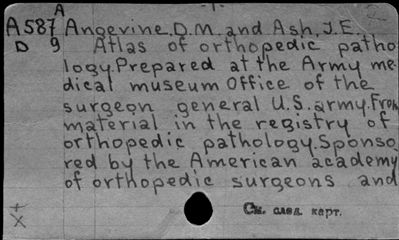 A
-1-
A587 Angevine, D.M. and Ash, J.E.
D 9 Atlas of orthopedic patho-
logy. Prepared at the Army me-
dical museum Office of the
surgeon general U.S. army. From
material in the registry of
orthopedic pathology. Sponso-
red by the American academy
of orthopedic surgeons and
+
X
См. след. карт.